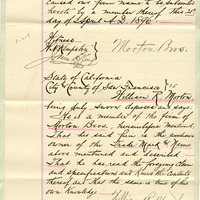 caused our firm name to be subscribed
hereto by a member thereof this 21st
day of April A.D. 1896
Witness
Morton Bros.
State of California
City County of San Francisco } SS
William R. Morton
being duly sworn deposes and says
He is a member of the firm of
Morton Bros. hereinbefore mentioned
That his said firm is the exclusive
owner of the Trade Mark & Name
above mentioned and described.
That he has read the foregoing claim
and specifications and knows the contents
thereof and that the same is true of his
own knowledge